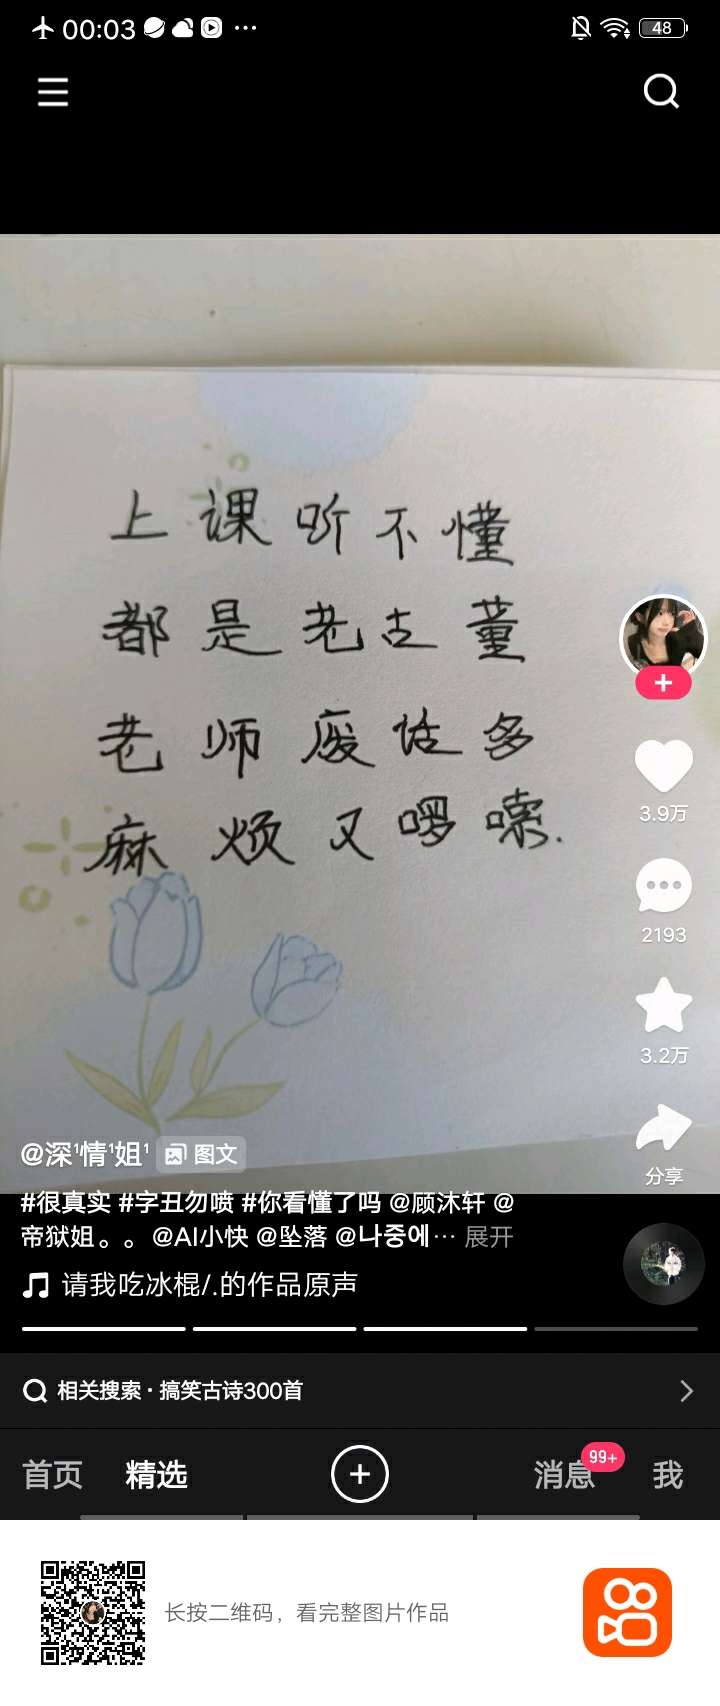 00:03
48
上课听不懂
都是老古董
老师废话多
麻烦又啰嗦.
3.9万
2193
3.2万
分享
@深¹情¹姐¹ 图文
#很真实 #字丑勿喷 #你看懂了吗 @顾沐轩 @
帝狱姐。。@AI小快 @坠落 @나중에… 展开
请我吃冰棍/.的作品原声
相关搜索·搞笑古诗300首
首页 精选 消息 99+ 我
长按二维码，看完整图片作品